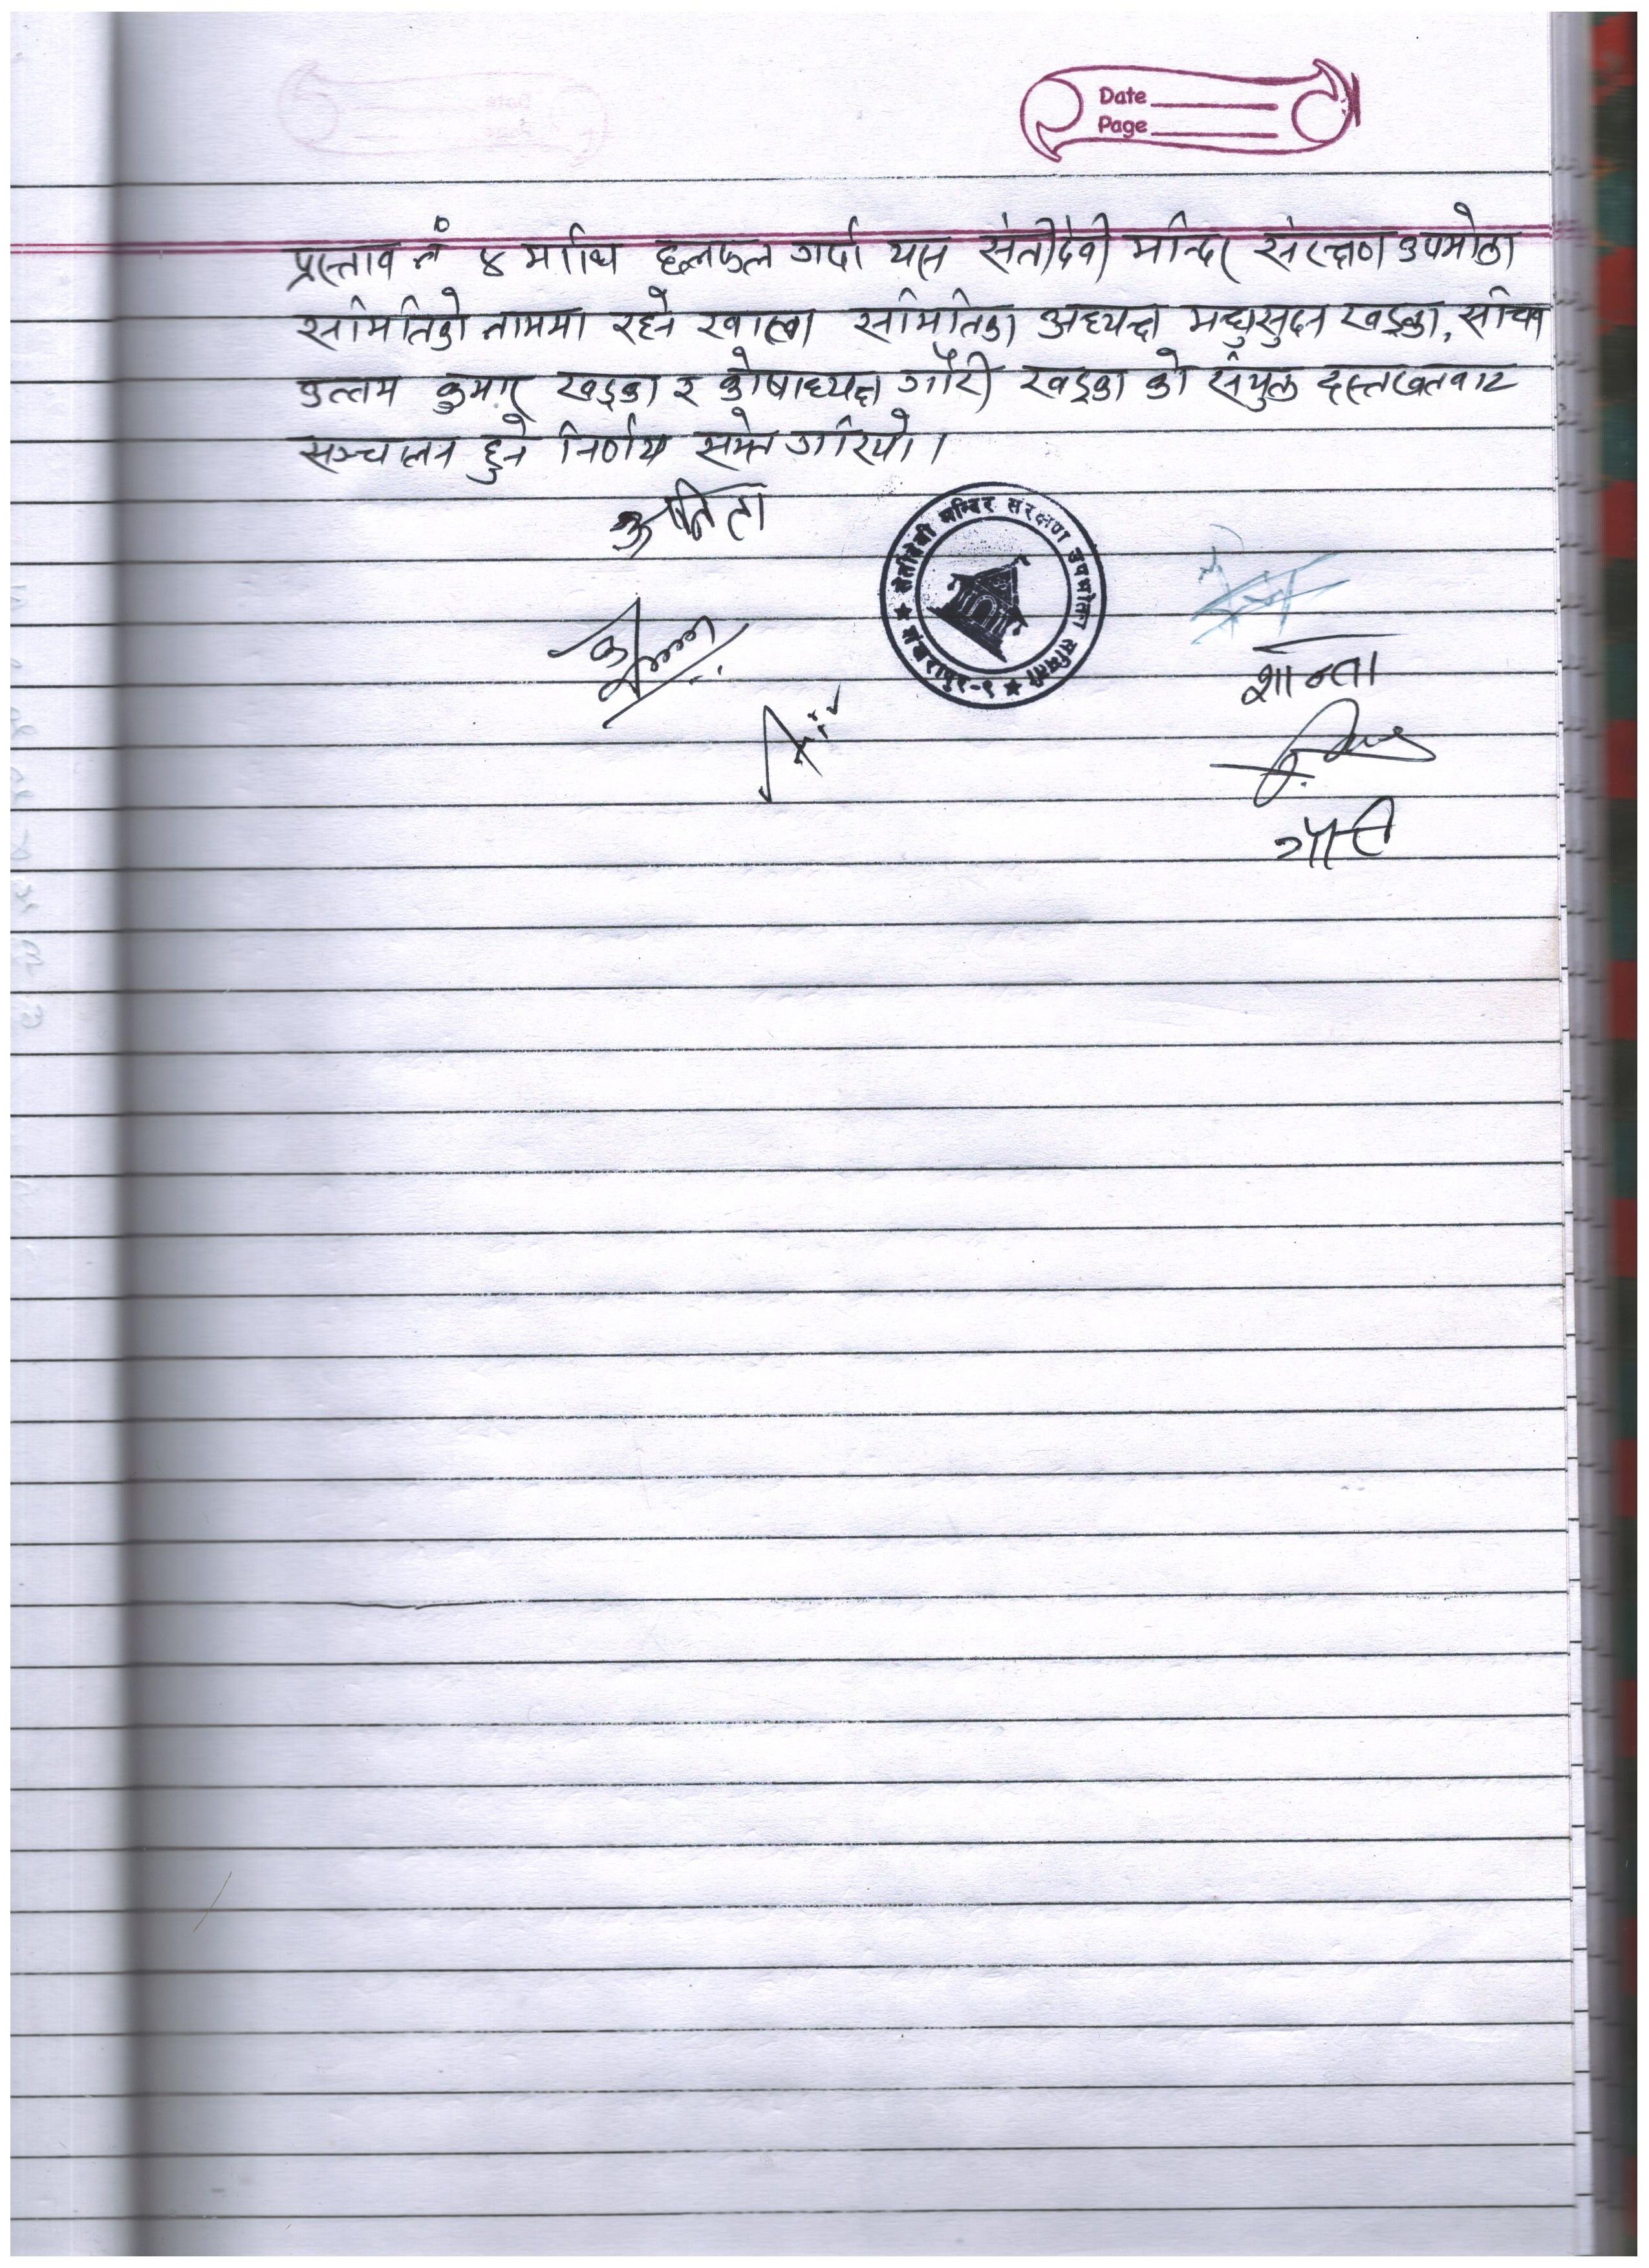 Date
Page
प्रस्ताव नं ४ माथि छलफल गर्दा यस सेतीदेवी मन्दिर संरक्षण उपभोक्ता
समितिको नाममा रहने खाता समितिका अध्यक्ष मधुसुदन खड्का, सचिव
उत्तम कुमार खड्का र कोषाध्यक्ष गौरी खड्का को संयुक्त दस्तखतबाट
सञ्चालन हुने निर्णय समेत गरियो।
सेतीदेवी मन्दिर संरक्षण उपभोक्ता समिती
शान्ता
गौरी